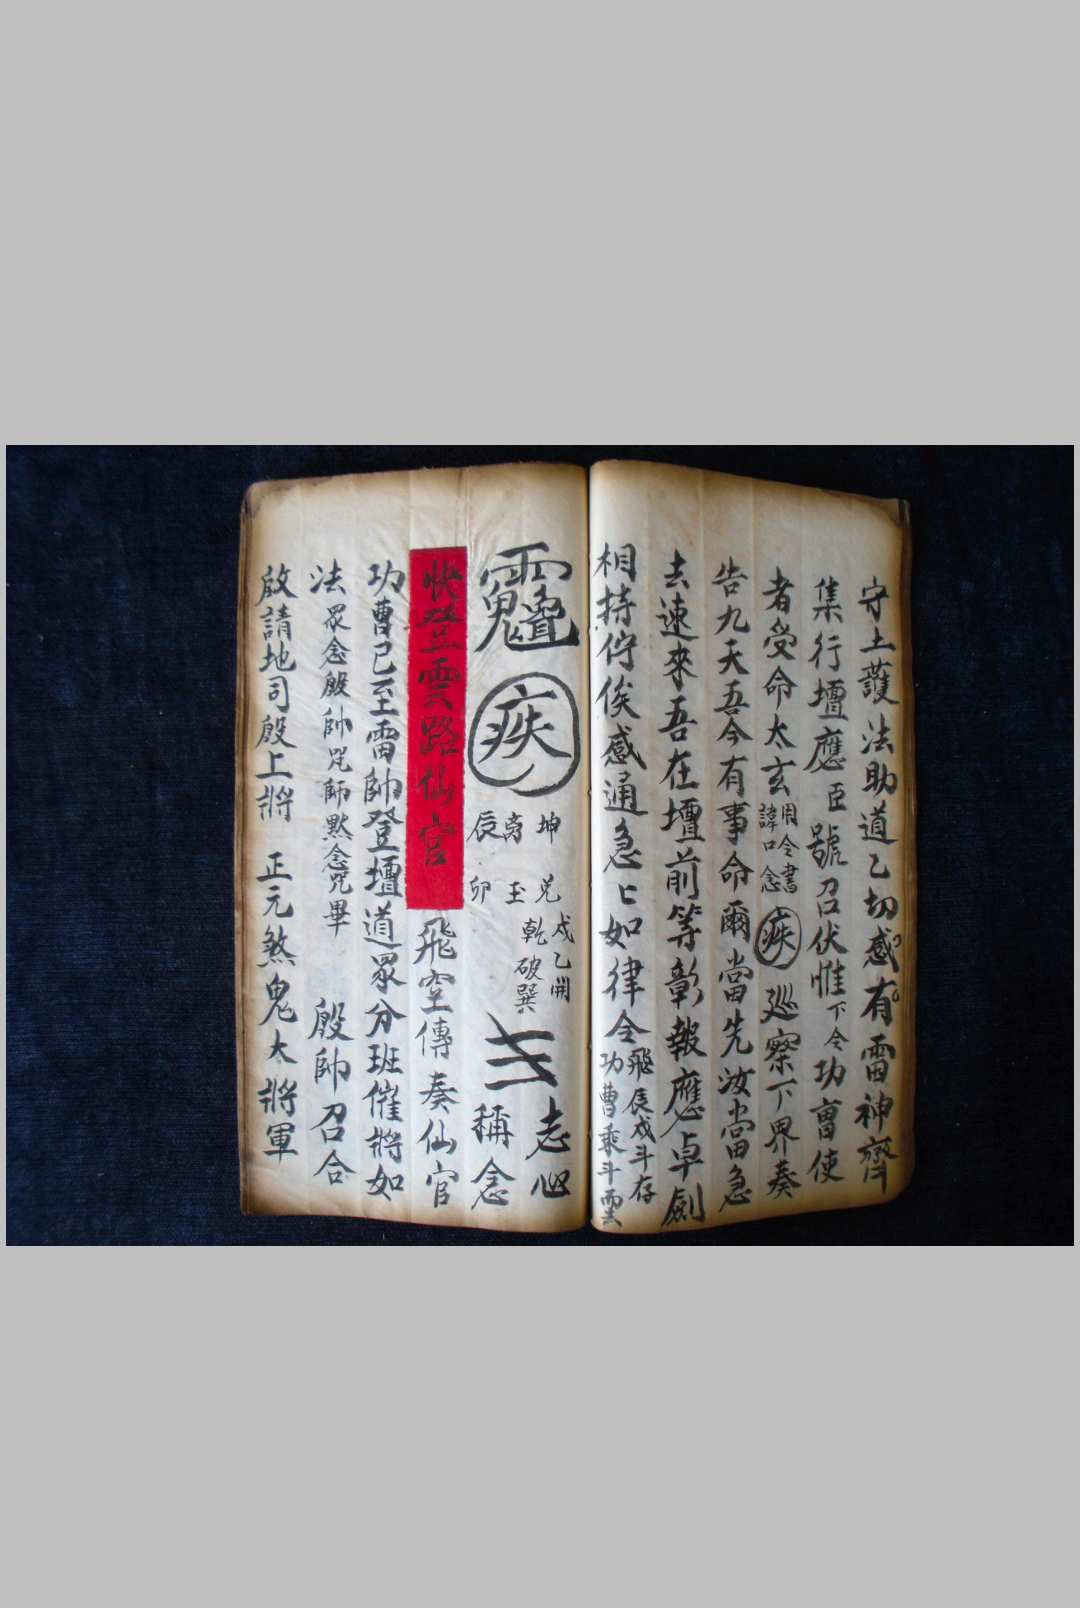 守土護法助道乙切感有雷神齊
集行壇應臣號召伏惟下令功曹使
者受命太玄用令書諱口念㾏巡察下界奏
告九天吾今有事命爾當先汝當急
去速來吾在壇前等彰報應卓劍
相持佇俟感通急匕如律令飛辰戌斗存功曹乘斗雲
坤 兌 戌乙開
离 玉 乾破巽
辰 卯
志心
稱念
快登雲路仙官飛空傳奏仙官
功曹已至雷帥登壇道眾分班催將如
法眾念殷帥咒師黙念咒畢 殷帥召合
啟請地司殷上將 正元煞鬼太將軍